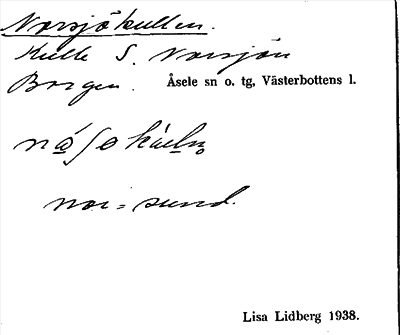 Norsjökullen.
Kulle S. Norsjön
Borgen. Åsele sn o. tg, Västerbottens l.
nor = sund.
Lisa Lidberg 1938.